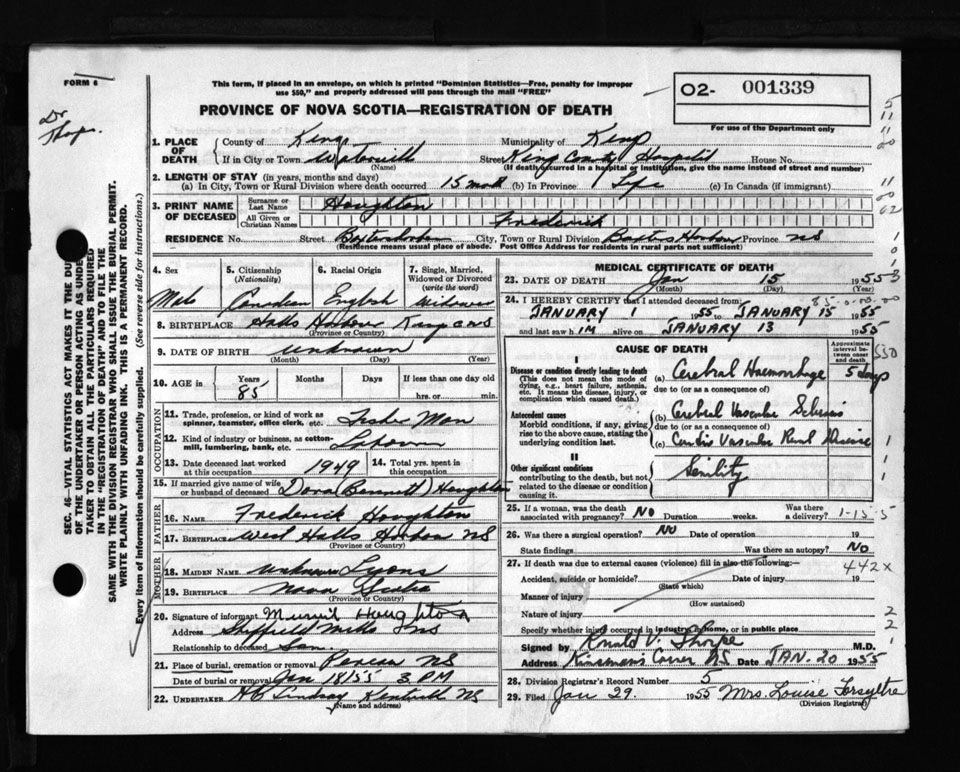 FORM 6
This form, if placed in an envelope, on which is printed "Dominion Statistics—Free, penalty for improper
use $50," and properly addressed will pass through the mail "FREE"
PROVINCE OF NOVA SCOTIA—REGISTRATION OF DEATH
O2- 001339
For use of the Department only
Dr
Thorpe
SEC. 46 - VITAL STATISTICS ACT MAKES IT THE DUTY
OF THE UNDERTAKER OR PERSON ACTING AS UNDER
TAKER TO OBTAIN ALL THE PARTICULARS REQUIRED
IN THE "REGISTRATION OF DEATH" AND TO FILE THE
SAME WITH THE DIVISION REGISTRAR WHO SHALL ISSUE THE BURIAL PERMIT.
WRITE PLAINLY WITH UNFADING INK. THIS IS A PERMANENT RECORD.
Every item of Information should be carefully supplied. (See reverse side for instructions.)
1. PLACE OF DEATH
County of Kings Municipality of Kings
If in City or Town Waterville Street Kings County Hospital House No.
(Name) (If death occurred in a hospital or institution, give the name instead of street and number)
2. LENGTH OF STAY (in years, months and days)
(a) In City, Town or Rural Division where death occurred 15 (b) In Province Life (c) In Canada (if immigrant)
3. PRINT NAME OF DECEASED
Surname or Last Name Houghton
All Given or Christian Names Frederick
RESIDENCE No. Street City, Town or Rural Division Baxters Harbour Province NS
(Residence means usual place of abode. Post Office Address for residents in rural parts not sufficient)
4. Sex 5. Citizenship (Nationality) 6. Racial Origin 7. Single, Married, Widowed or Divorced (write the word)
Male Canadian English Widower
8. BIRTHPLACE Halls Harbour Kings Co NS
(Province or Country)
9. DATE OF BIRTH unknown
(Month) (Day) (Year)
10. AGE in Years Months Days If less than one day old
85 hrs. or min.
OCCUPATION
11. Trade, profession, or kind of work as spinner, teamster, office clerk, etc. Fisher Man
12. Kind of industry or business, as cotton-mill, lumbering, bank, etc.
13. Date deceased last worked at this occupation 1949 14. Total yrs. spent in this occupation
15. If married give name of wife or husband of deceased Dora (Bennett) Houghton
FATHER
16. NAME Frederick Houghton
17. BIRTHPLACE West Halls Harbour NS
(Province or Country)
MOTHER
18. MAIDEN NAME unknown Lyons
19. BIRTHPLACE Nova Scotia
(Province or Country)
20. Signature of informant Houghton
Address Sheffield Mills NS
Relationship to deceased Son
21. Place of burial, cremation or removal NS
Date of burial or removal Jan 18/55 3 PM
22. UNDERTAKER HC Lindsay Kentville NS
(Name and address)
MEDICAL CERTIFICATE OF DEATH
23. DATE OF DEATH Jan 15 1955
(Month) (Day) (Year)
24. I HEREBY CERTIFY that I attended deceased from:
JANUARY 1 1955 to JANUARY 15 1955
and last saw him alive on JANUARY 13 1955
CAUSE OF DEATH
Approximate interval between onset and death
I
Disease or condition directly leading to death
(This does not mean the mode of dying, e.g., heart failure, asthenia, etc. It means the disease, injury, or complication which caused death.)
(a) Cerebral Haemorrhage 5 days
due to (or as a consequence of)
Antecedent causes
Morbid conditions, if any, giving rise to the above cause, stating the underlying condition last.
(b) Cerebral Vascular Sclerosis
due to (or as a consequence of)
(c) Cardio Vascular Renal Disease
II
Other significant conditions
contributing to the death, but not related to the disease or condition causing it.
Senility
25. If a woman, was the death associated with pregnancy? NO Duration weeks. Was there a delivery?
26. Was there a surgical operation? NO Date of operation 19
State findings Was there an autopsy? NO
27. If death was due to external causes (violence) fill in also the following:
442X
Accident, suicide or homicide? Date of injury 19
(State which)
Manner of injury
(How sustained)
Nature of injury
Specify whether injury occurred in industry, in home, or in public place
Signed by Ronald V. Thorpe M.D.
Address Kinsmans Corner NS Date JAN. 20 1955
28. Division Registrar's Record Number 5
29. Filed Jan 29. 1955 Mrs. Louise Forsythe
(Division Registrar)